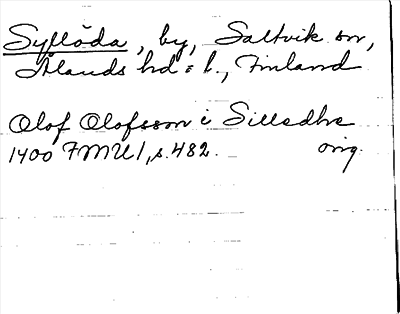 Syllöda, by, Saltvik sn,
Ålands hd = l., Finland
Olof Olofsson i Silledhe
1400 FMU I, s. 482. orig.